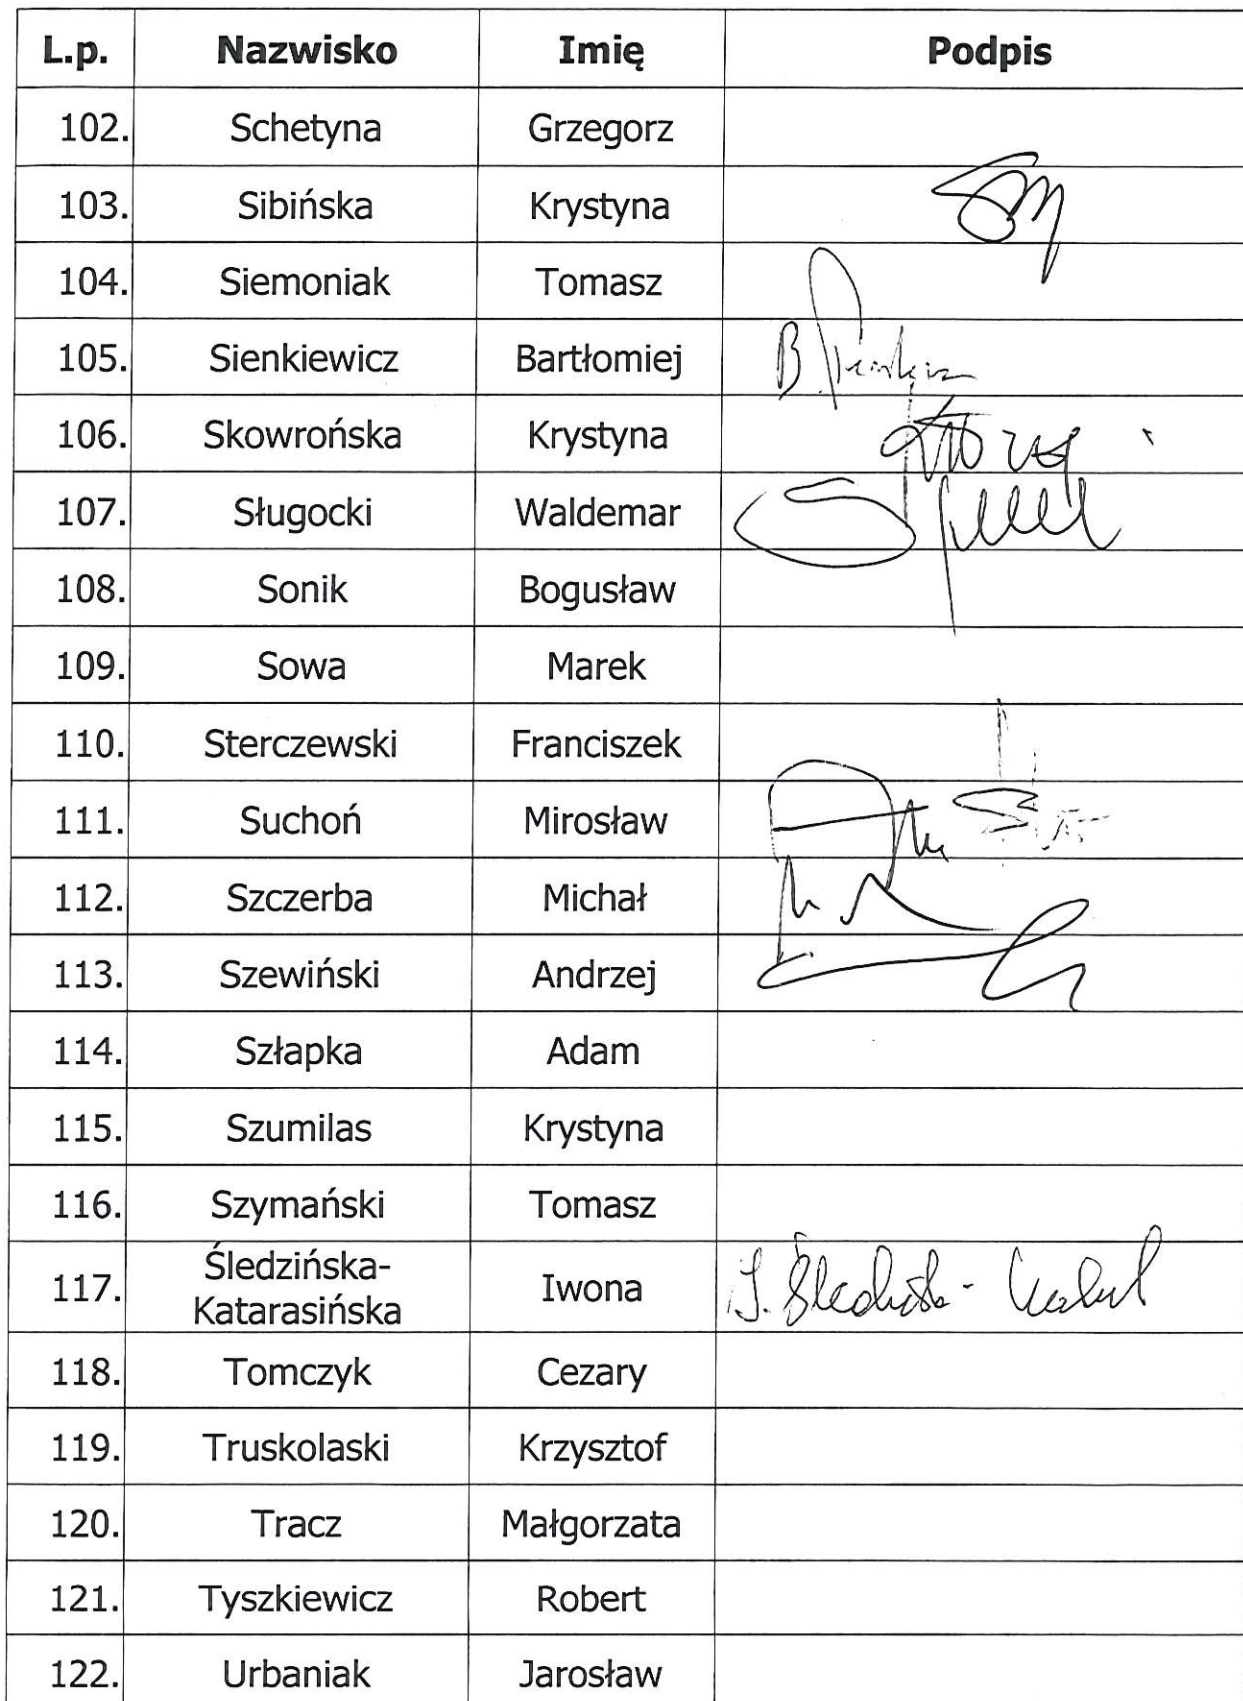 L.p. Nazwisko Imię Podpis
102. Schetyna Grzegorz
103. Sibińska Krystyna
104. Siemoniak Tomasz
105. Sienkiewicz Bartłomiej B.
106. Skowrońska Krystyna
107. Sługocki Waldemar
108. Sonik Bogusław
109. Sowa Marek
110. Sterczewski Franciszek
111. Suchoń Mirosław
112. Szczerba Michał
113. Szewiński Andrzej
114. Szłapka Adam
115. Szumilas Krystyna
116. Szymański Tomasz
117. Śledzińska-
Katarasińska Iwona
118. Tomczyk Cezary
119. Truskolaski Krzysztof
120. Tracz Małgorzata
121. Tyszkiewicz Robert
122. Urbaniak Jarosław